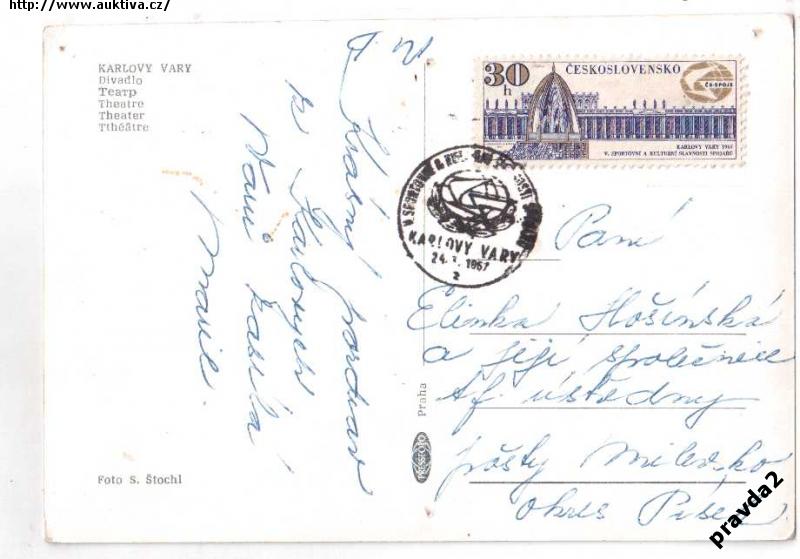 http://www.auktiva.cz/
KARLOVY VARY
Divadlo
Театр
Theatre
Theater
Tthéâtre
30 h
ČESKOSLOVENSKO
ČS-SPOJE
KARLOVY VARY 1967
V. SPORTOVNÍ A KULTURNÍ SLAVNOSTI SPOJAŮ
V. SPORTOVNÍ A
KARLOVY VARY
1967
2
Krásný pozdrav
ze Karlových
Varů zasílá
Marie.
Paní
Elinka Hošínská
a její společnice
tf. ústředny
pošty Milevsko
okres Písek
Praha
PRESSFOTO
Foto S. Štochl
pravda2